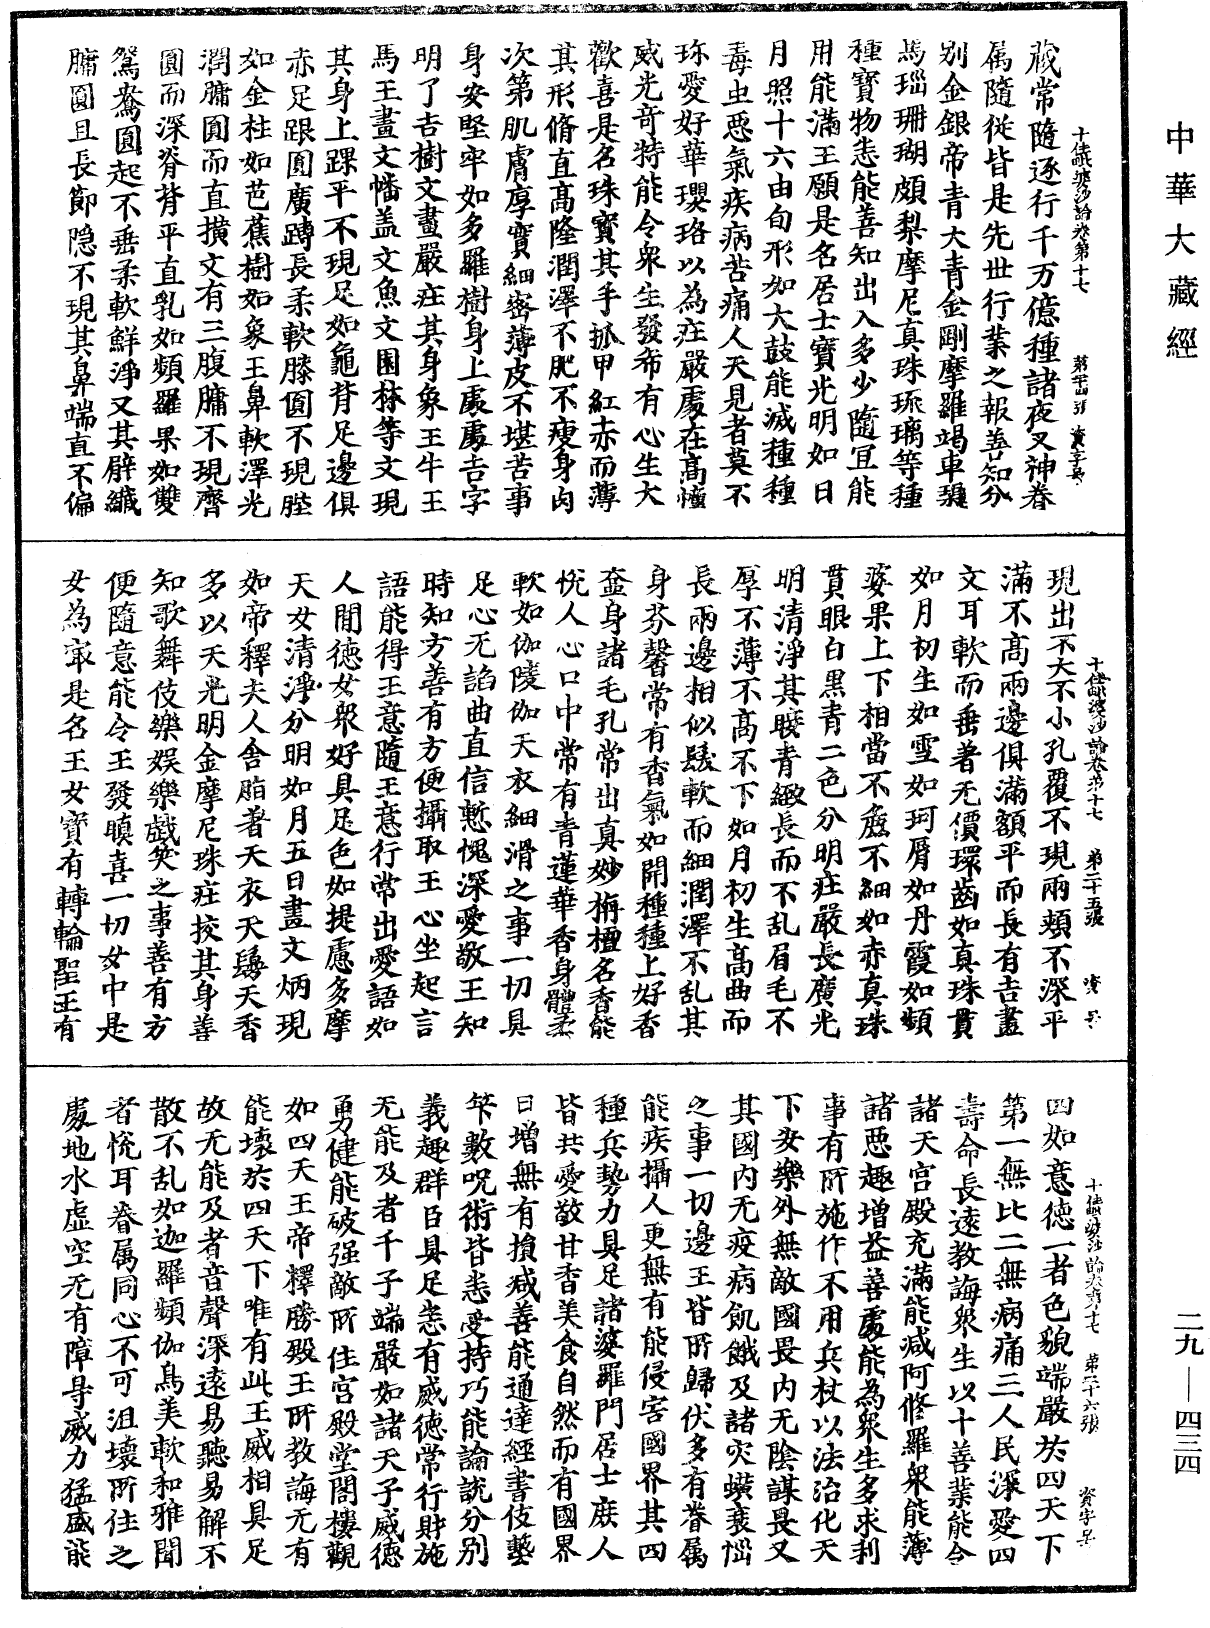 中華大藏經
十住毗婆沙論卷第十七 第二十四張 資字号
藏常隨逐行千万億種諸夜叉神眷
属隨從皆是先世行業之報善知分
别金銀帝青大青金剛摩羅竭車𤦲
馬瑙珊瑚頗梨摩尼真珠琉璃等種
種寶物悉能善知出入多少隨冝能
用能滿王願是名居士寶光明如日
月照十六由旬形如大鼓能滅種種
毒虫悪氣疾病苦痛人天見者莫不
珎愛好華瓔珞以為莊嚴處在高幢
威光奇特能令衆生發希有心生大
歡喜是名珠寳其手抓甲紅赤而薄
其形脩直高隆潤澤不肥不瘦身肉
次第肌膚厚實細密薄皮不堪苦事
身安堅牢如多羅樹身上處處吉字
明了吉樹文畫嚴莊其身象王牛王
馬王畫文幡盖文魚文園林等文現
其身上踝平不現足如龜背足邊俱
赤足跟圓廣蹲長柔軟膝圓不現䏶
如金柱如芭蕉樹如象王鼻軟澤光
潤𦟛圓而直撗文有三腹𦟛不現齊
圓而深脊背平直乳如頻羅果如雙
鴛鴦圓起不垂柔軟鮮淨又其臂纎
𦟛圓且長節隠不現其鼻端直不偏
十住毗婆沙論卷第十七 第二十五張 資 号
現出不大不小孔覆不現兩頰不深平
滿不高兩邊俱滿額平而長有吉畫
文耳軟而垂著无價環齒如真珠貫
如月初生如雪如珂脣如丹霞如頻
婆果上下相當不麁不細如赤真珠
貫眼白黒青二色分明莊嚴長廣光
明清淨其睫青緻長而不乱眉毛不
厚不薄不高不下如月初生高曲而
長兩邊相似髮軟而細潤澤不乱其
身芬馨常有香氣如開種種上好香
奩身諸毛孔常出真妙栴檀名香能
悅人心口中常有青蓮華香身體柔
軟如伽陵伽天衣細滑之事一切具
足心无諂曲直信慙愧深愛敬王知
時知方善有方便攝取王心坐起言
語能得王意隨王意行常出愛語如
人閒德女衆好具足色如提盧多摩
天女清淨分明如月五日畫文炳現
如帝釋夫人舍脂著天衣天鬘天香
多以天光明金摩尼珠莊挍其身善
知歌舞伎樂娱樂戯笑之事善有方
便隨意能令王發瞋喜一切女中是
女為㝡是名王女寳有轉輪聖王有
十住毗婆沙論卷第十七 第二十六張 資字号
四如意德一者色貌端嚴於四天下
第一無比二無病痛三人民深愛四
壽命長遠教誨衆生以十善業能令
諸天宫殿充滿能减阿修羅衆能薄
諸悪趣增益善處能為衆生多求利
事有所施作不用兵杖以法治化天
下安樂外無敵國畏内无陰謀畏又
其國内无疫病飢餓及諸灾蝗衰惱
之事一切邊王皆所歸伏多有眷属
能疾攝人更無有能侵害國界其四
種兵勢力具足諸婆羅門居士庻人
皆共愛敬甘香美食自然而有國界
日增無有損减善能通達經書伎藝
筭數呪術皆悉受持巧能論說分别
義趣群臣具足悉有威德常行財施
无能及者千子端嚴如諸天子威德
勇健能破强敵所住宫殿堂閣樓觀
如四天王帝釋勝殿王所教誨无有
能壞於四天下唯有此王威相具足
故无能及者音聲深遠易聽易解不
散不乱如迦羅頻伽鳥美軟和雅聞
者悅耳眷属同心不可沮壞所住之
處地水虚空无有障导威力猛盛能
二九—四三四